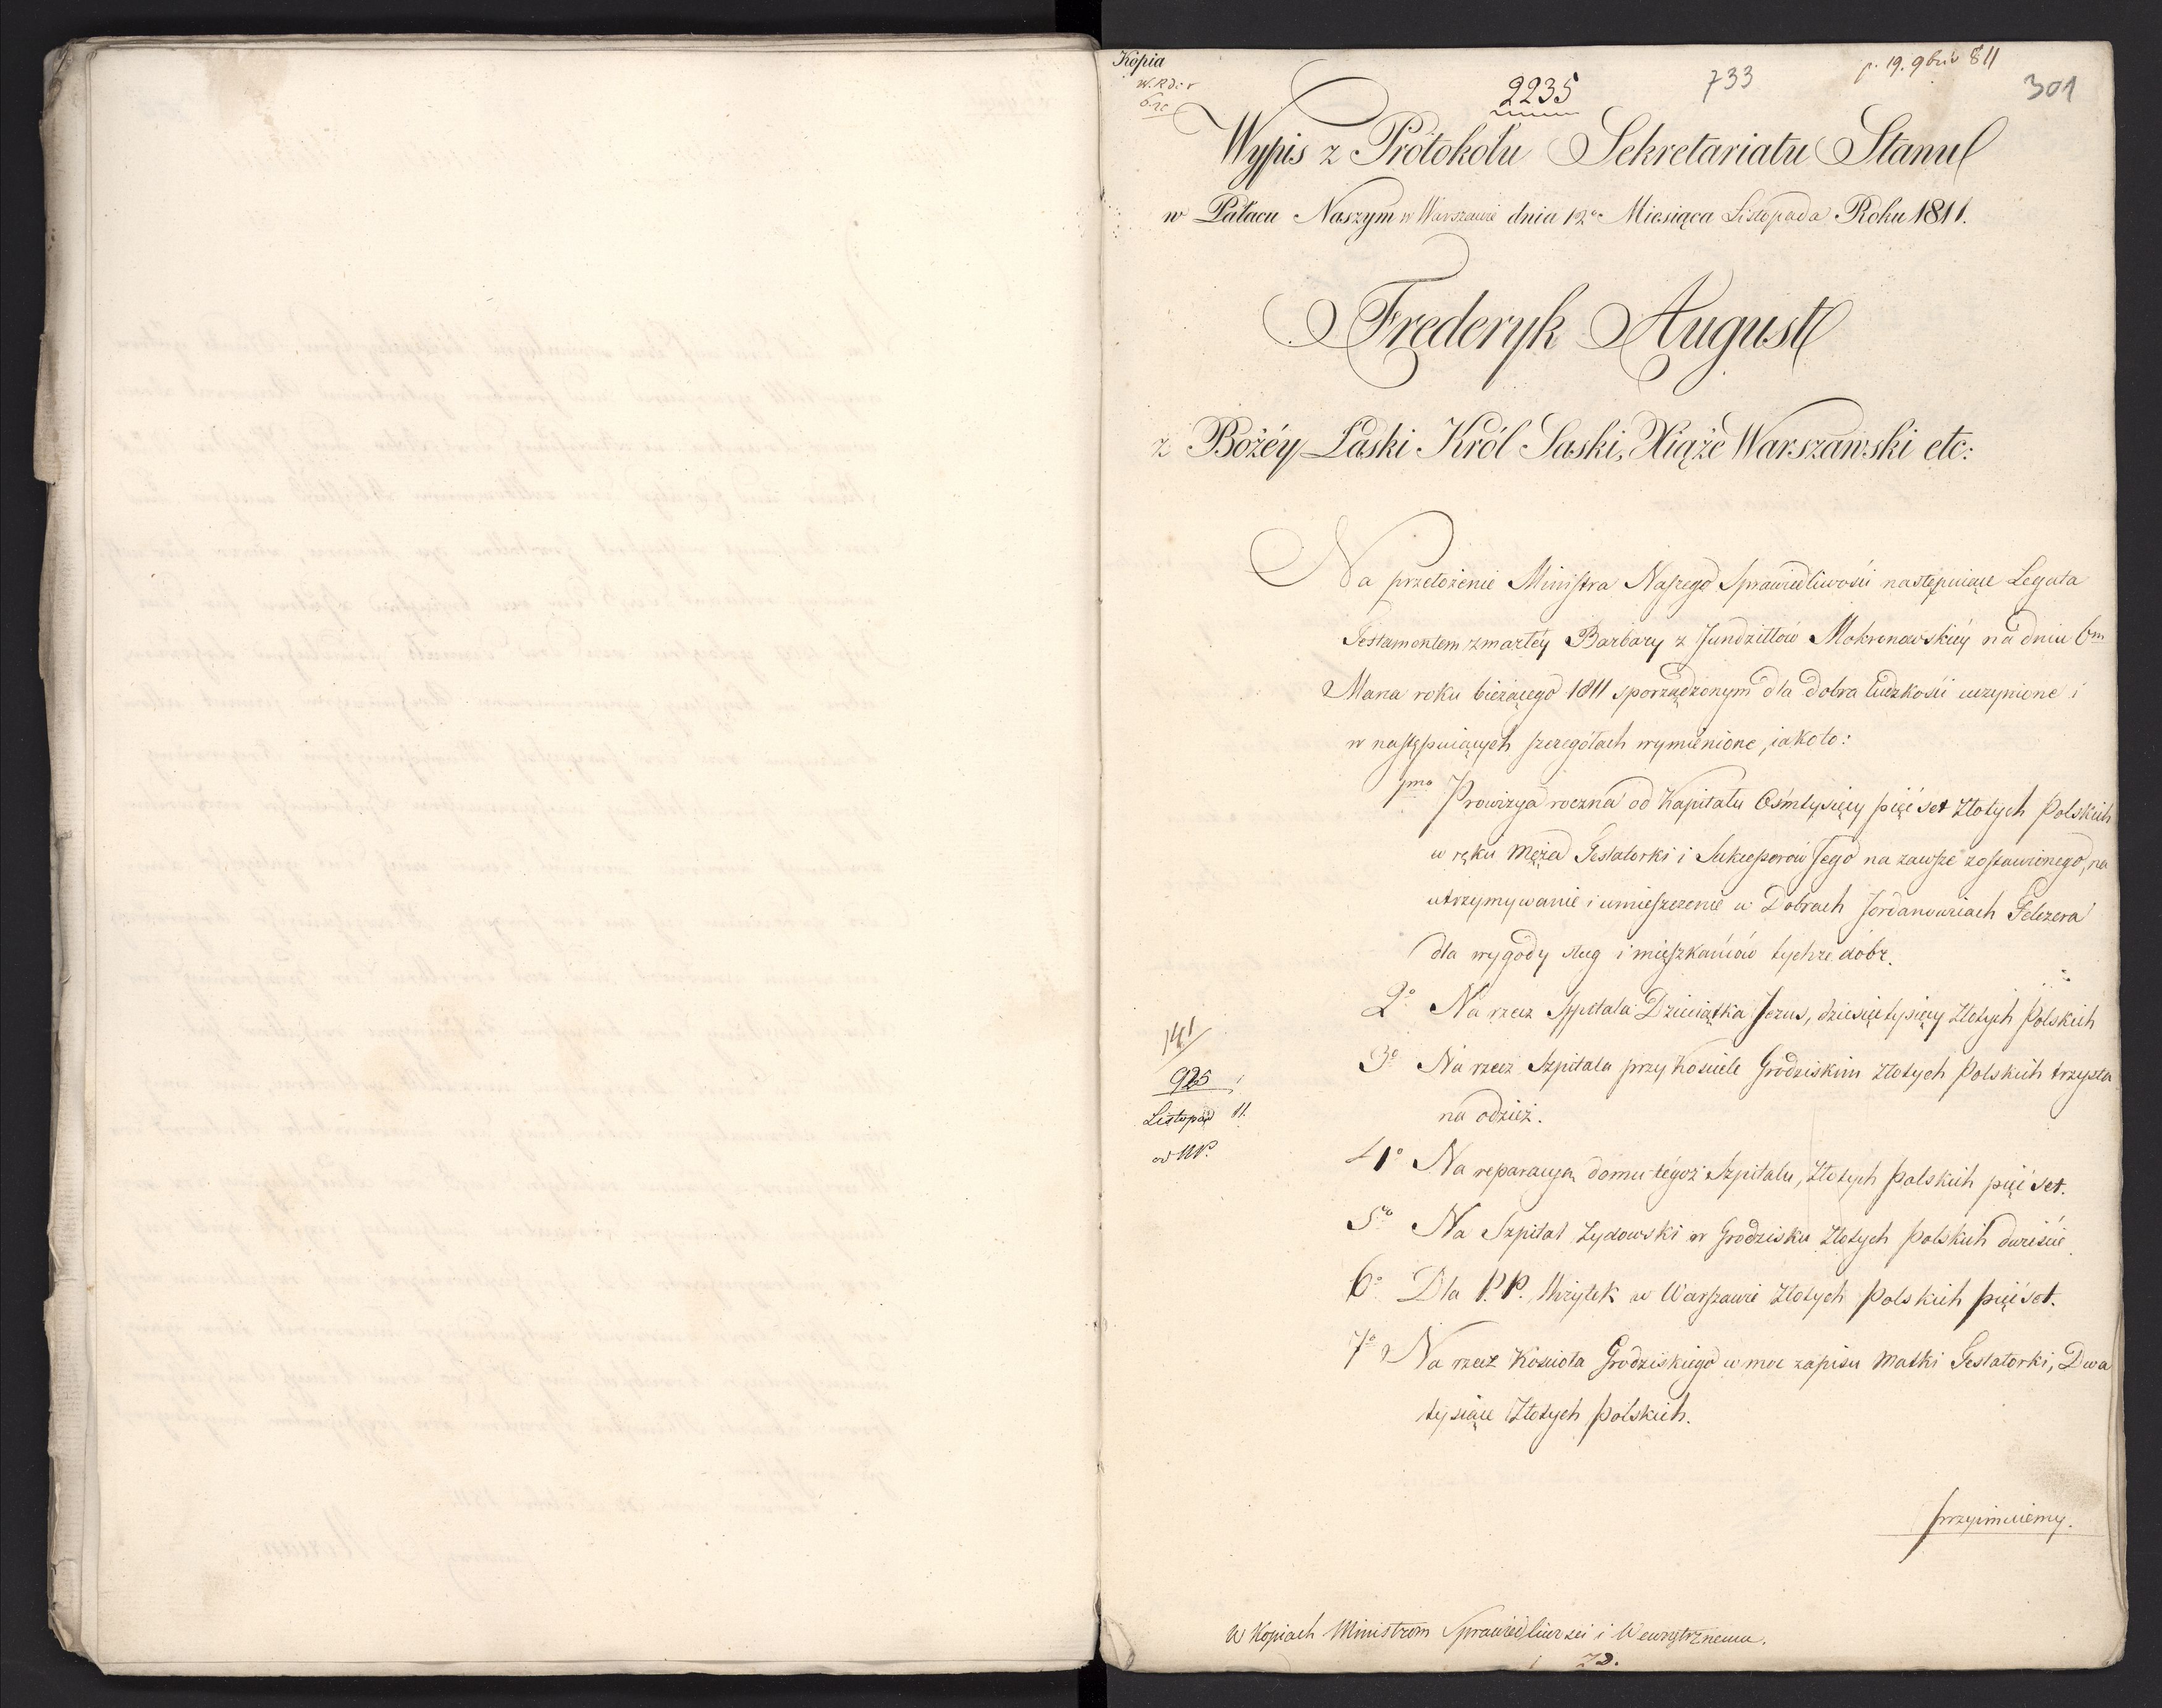 Kopia
2235
733
p. 19. 9bris 811
301
Wypis z Protokołu Sekretariatu Stanu
w Pałacu Naszym w Warszawie dnia 12o Miesiąca Listopada Roku 1811.
Frederyk August
z Bożéy Łaski Król Saski, Xiąże Warszawski etc:
Na przełożenie Ministra Naszego Sprawiedliwości następuiące Legata
Testamentem zmarłéy Barbary z Jundziłłów Mokronowskiéy na dniu 6m
Marca roku bieżącego 1811 sporządzonym dla dobra ludzkości uczynione i
w następuiących szczegółach wymienione, iakoto:
1mo Prowizya roczna od Kapitału Ośmtysięcy pięćset Złotych Polskich
w ręku Męża Testatorki i Sukcessorów Jego na zawsze zostawionego, na
utrzymywanie i umieszczenie w Dobrach Jordanowicach Felczera
dla wygody sług i mieszkańców tychże dóbr.
2o Na rzecz Szpitala Dzieciątka Jezus, dziesięćtysięcy Złotych Polskich
3o Na rzecz Szpitala przy Kościele Grodziskim Złotych Polskich trzysta
na odzież.
4o Na reparacyą domu tégoż Szpitalu, Złotych Polskich pięćset.
5o Na Szpital Żydowski w Grodzisku Złotych Polskich dwieście
6o Dla P.P. Wizytek w Warszawie Złotych Polskich pięćset.
7o Na rzecz Kościoła Grodziskiego w moc zapisu Matki Testatorki, Dwa
tysiące Złotych Polskich.
przyimuiemy.
141
925
Listopad 11.
W Kopiach Ministrom Sprawiedliwości i Wewnętrznemu.